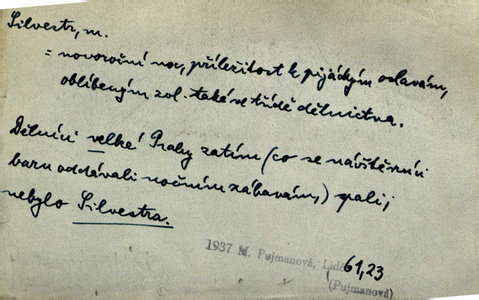 Silvestr, m.
= novoroční noc, příležitost k pijáckým oslavám,
oblíbeným zvl. také ve třídě dělnictva.
Dělníci velké Prahy zatím (co se návštěvníci
baru oddávali nočním zábavám,) spali,
nebylo Silvestra.
1937 M. Pujmanová, Lidé 61,23
(Pujmanová)